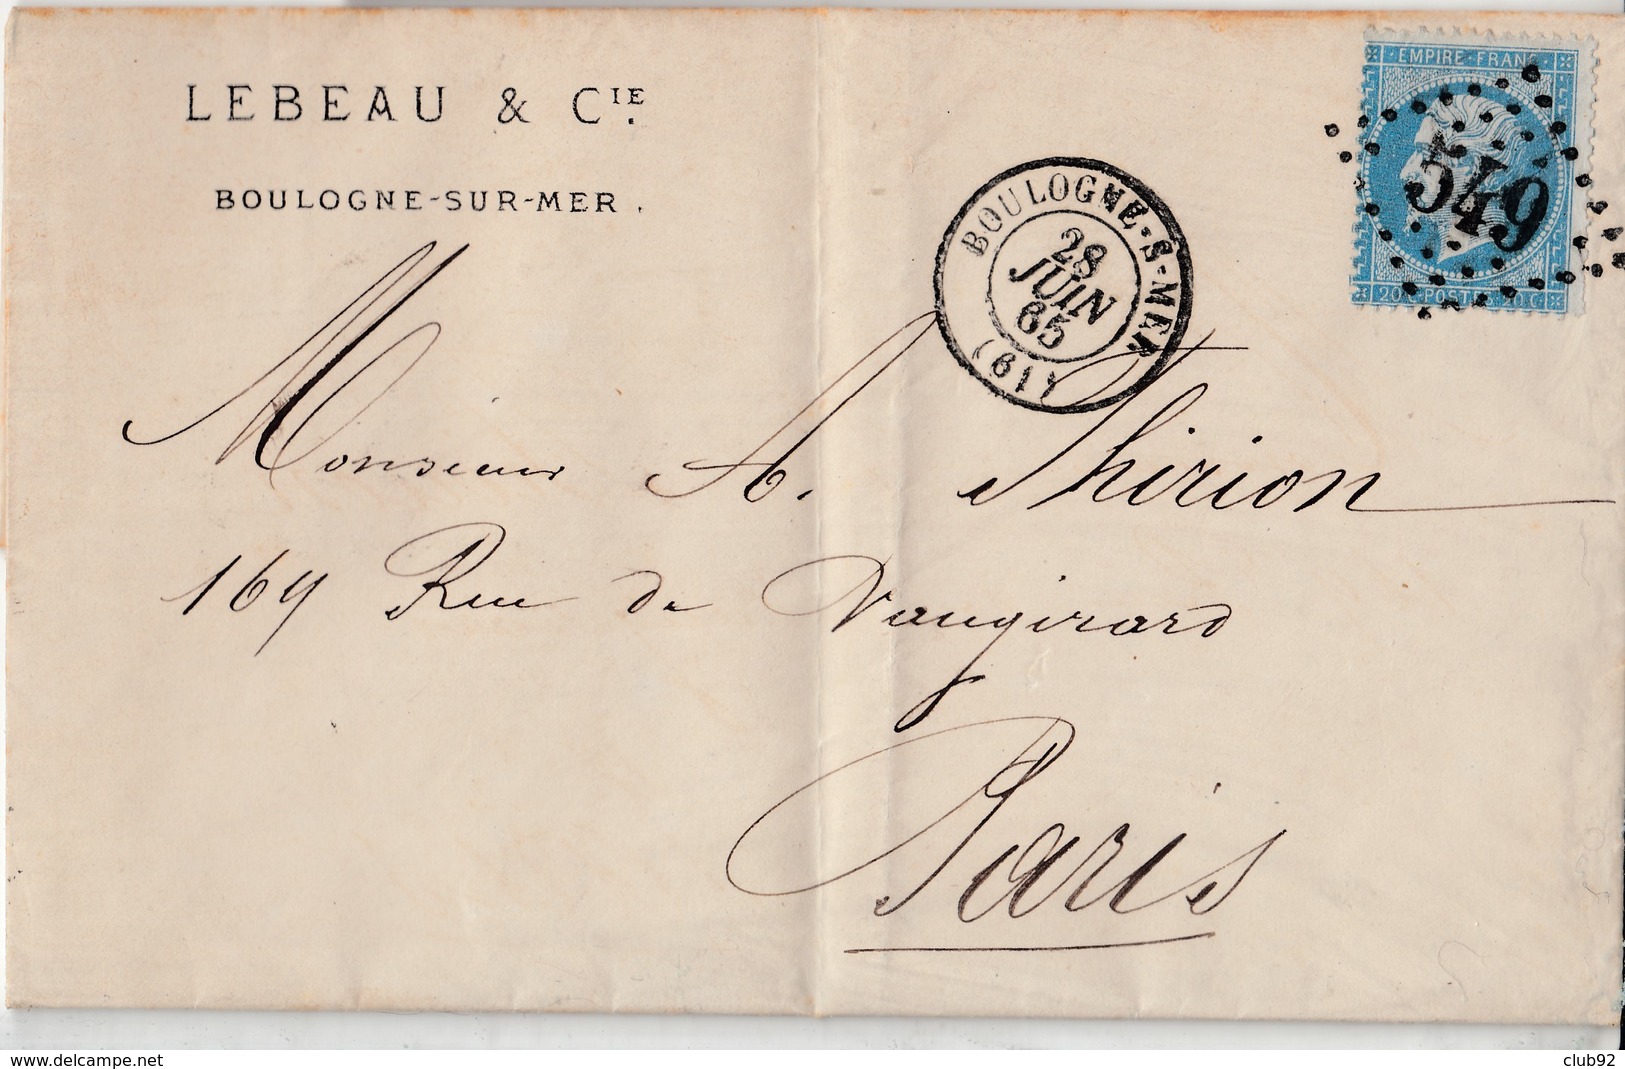 LEBEAU & CIE.
BOULOGNE-SUR-MER.
EMPIRE FRANC
549
20 C POSTES 20 C
BOULOGNE-S-MER
28
JUIN
65
(61)
Monsieur A. Thirion
169 Rue de Vaugirard
Paris
delcampe.net
club92